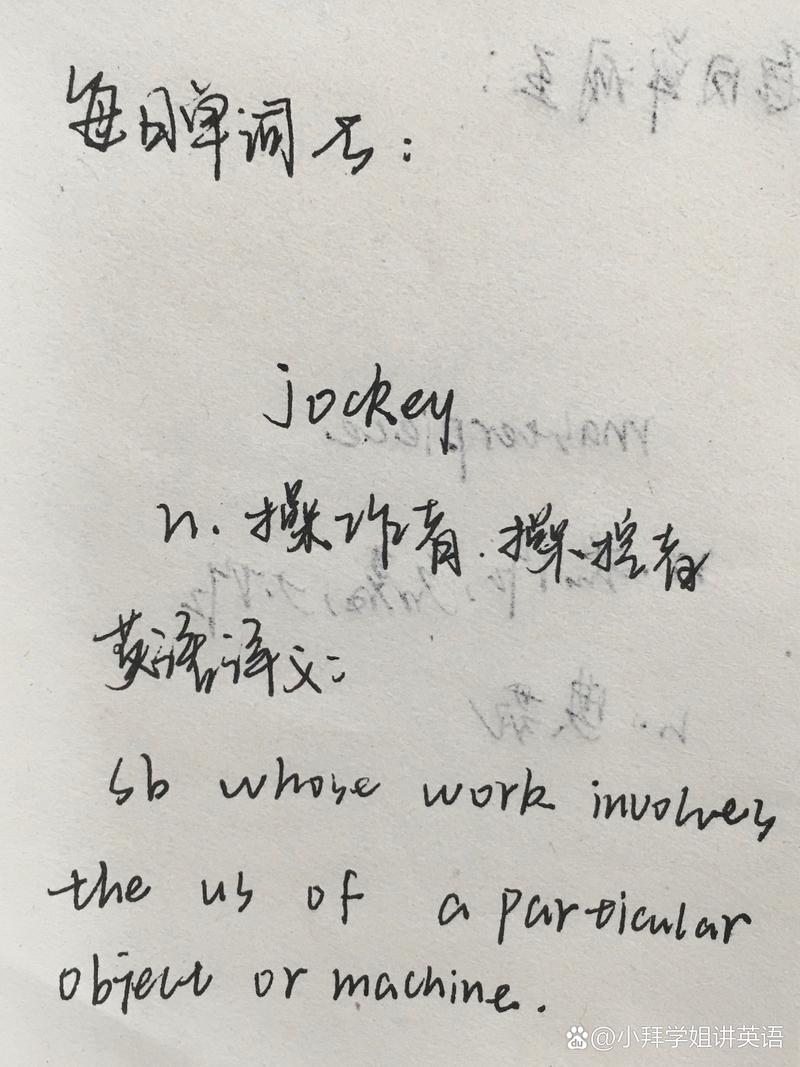 每日单词七:
jockey
n. 操作者.操控者
英语译义:
sb whose work involves
the us of a particular
object or machine.
@小拜学姐讲英语